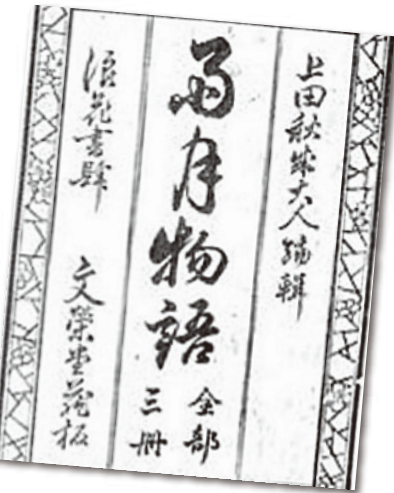 上田秋成大人編輯
雨月物語
全部
三冊
浪花書肆　文榮堂藏板